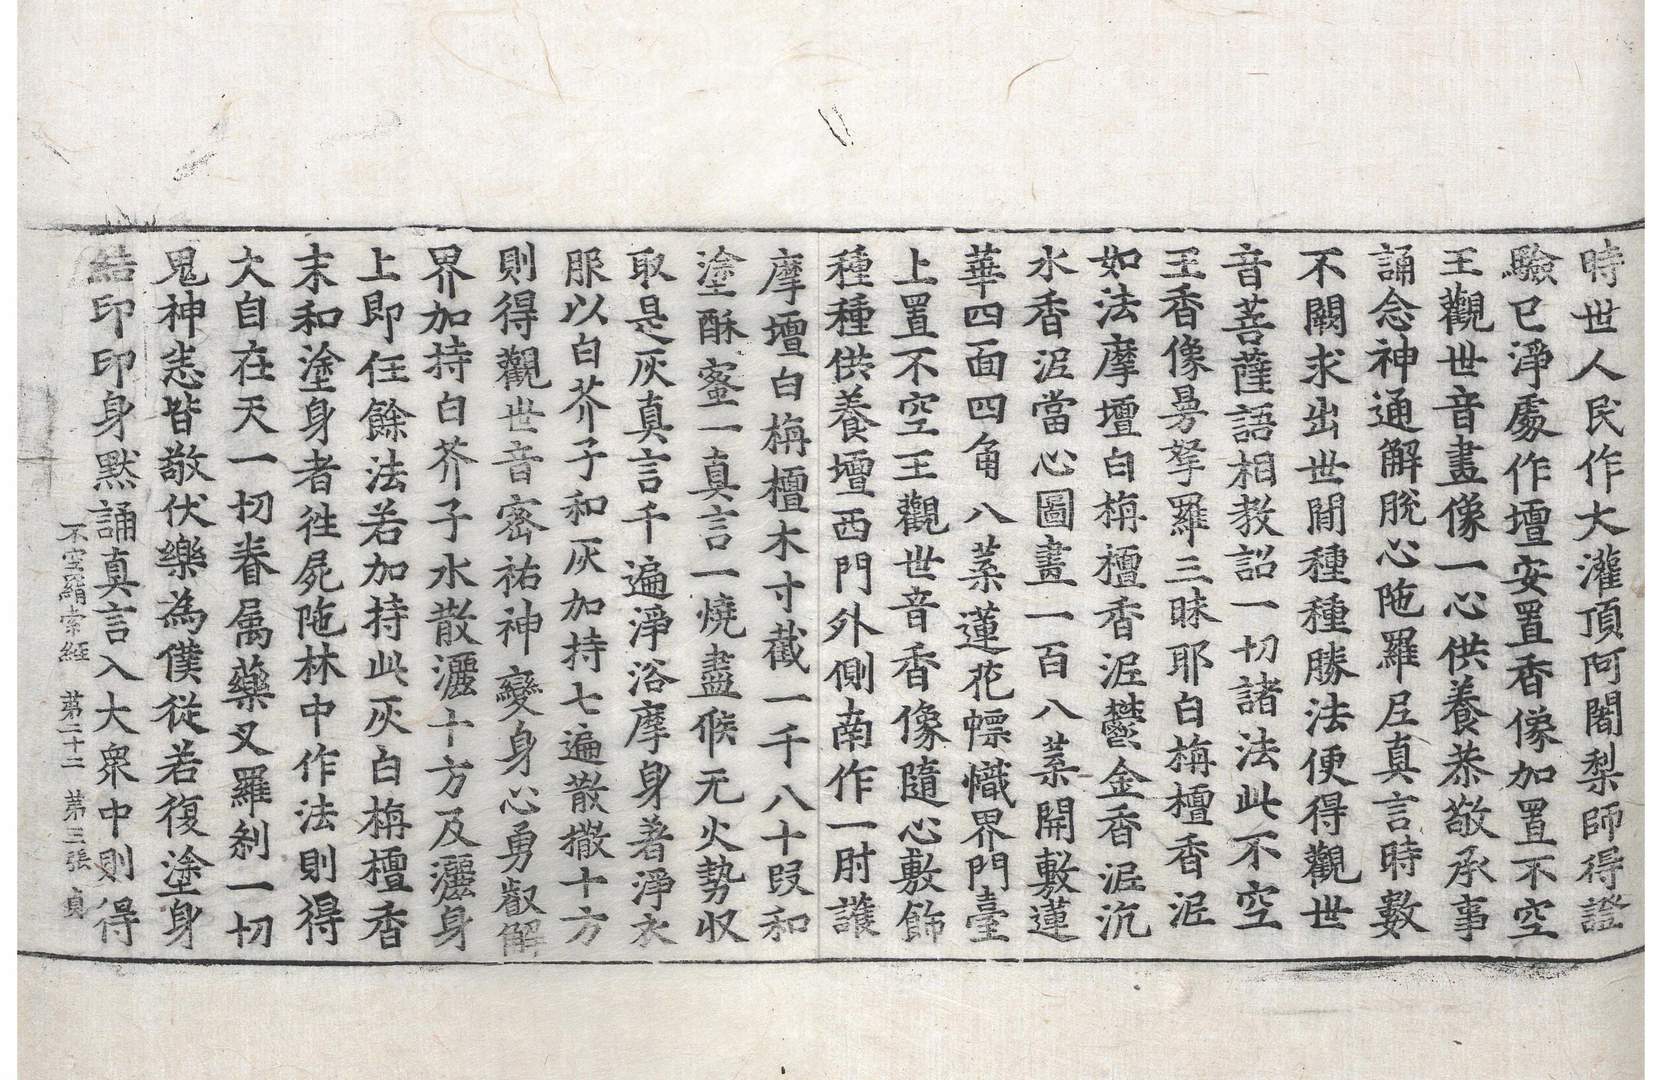 時世人民作大灌頂阿闍梨師得證
驗已淨處作壇安置香像加置不空
王觀世音畫像一心供養恭敬承事
誦念神通解脫心陁羅尼真言時數
不闕求出世間種種勝法便得觀世
音菩薩語相教詔一切諸法此不空
王香像曼拏羅三昧耶白栴檀香泥
如法摩壇白栴檀香泥鬱金香泥沉
水香泥當心圖畫一百八葉開敷蓮
華四面四角八葉蓮花幖幟界門臺
上置不空王觀世音香像隨心敷飾
種種供養壇西門外側南作一肘護
摩壇白栴檀木寸截一千八十段和
塗酥蜜一真言一燒盡候无火勢収
取是灰真言千遍淨浴摩身著淨衣
服以白芥子和灰加持七遍散撒十方
則得觀世音密祐神變身心勇叡解
界加持白芥子水散灑十方及灑身
上即任餘法若加持此灰白栴檀香
末和塗身者徃屍陁林中作法則得
大自在天一切眷属藥叉羅剎一切
鬼神恚皆敬伏樂為僕從若復塗身
結印印身默誦真言入大衆中則得
不空羂索經 第二十二 第三張 貞